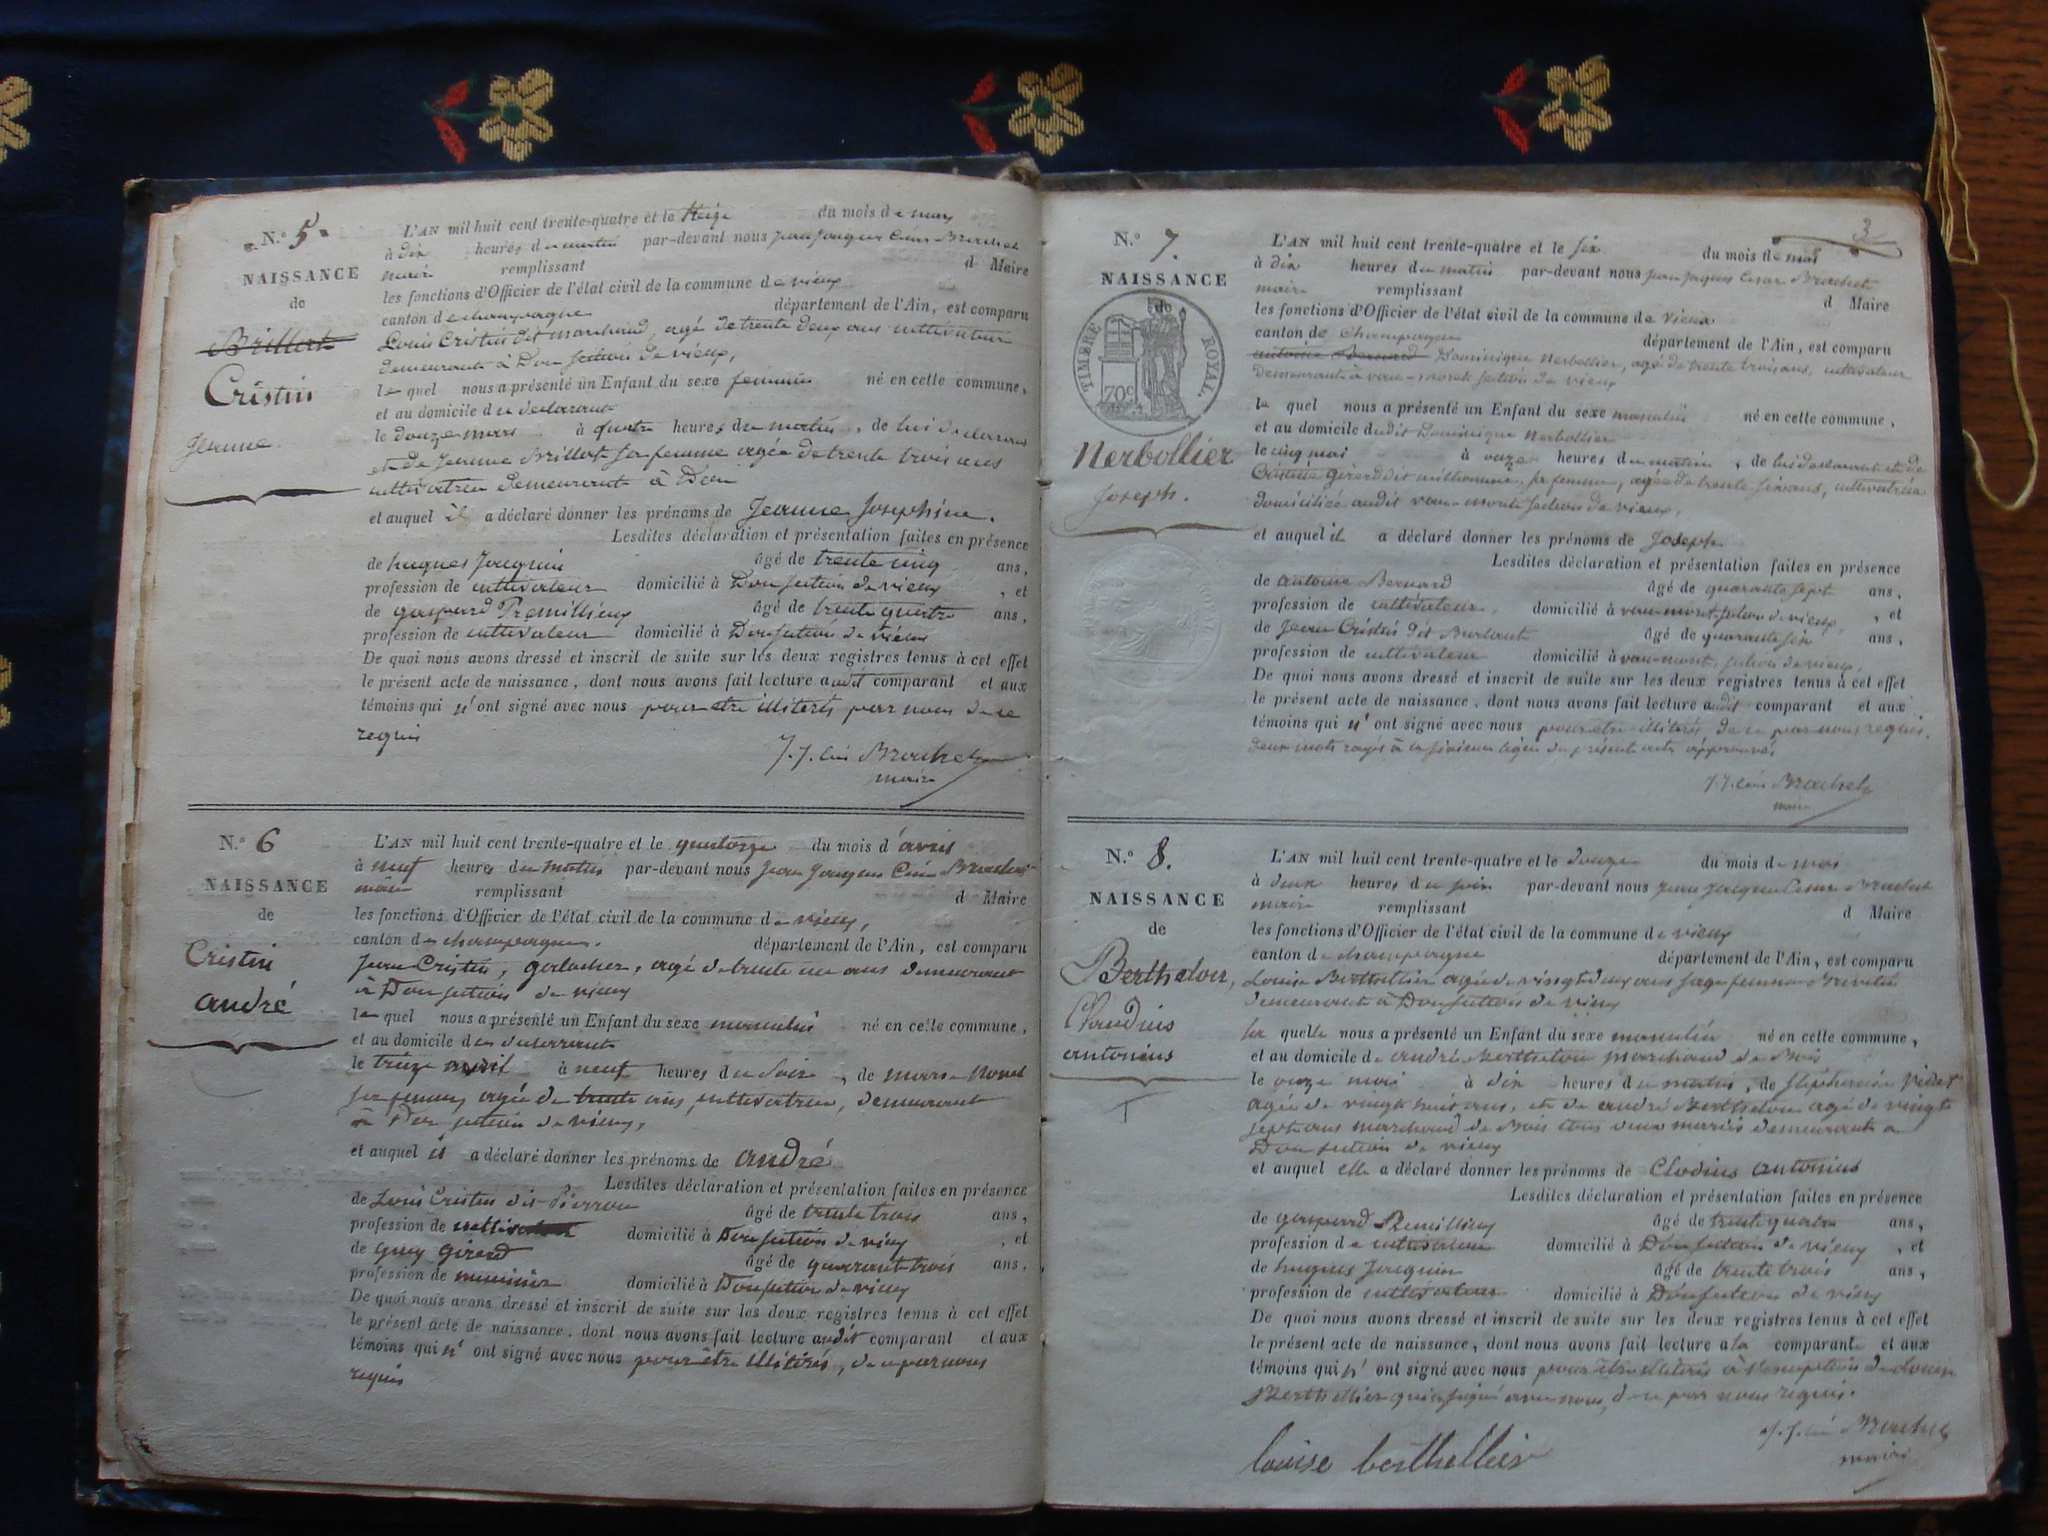 N.° 5
NAISSANCE
de
Brillert
Cristin
Jeanne
L'AN mil huit cent trente-quatre et le treize du mois de mars
à dix heures du matin par-devant nous Jean Jacques César Brachet
maire remplissant d Maire
les fonctions d'Officier de l'état civil de la commune de vieux
canton de champagne département de l'Ain, est comparu
Louis Cristin dit marchand, agé de trente deux ans cultivateur
demeurant à Don section de vieux,
le quel nous a présenté un Enfant du sexe feminin né en cette commune,
et au domicile du declarant
le douze mars à quatre heures du matin, de lui declarant
et de Jeanne Brillert sa femme agée de trente trois ans
cultivatrice demeurant à Don
et auquel il a déclaré donner les prénoms de Jeanne Josephine.
Lesdites déclaration et présentation faites en présence
de hugues Jacquin âgé de trente cinq ans,
profession de cultivateur domicilié à Don section de vieux, et
de gaspard Premillieux âgé de trente quatre ans,
profession de cultivateur domicilié à Don section de vieux
De quoi nous avons dressé et inscrit de suite sur les deux registres tenus à cet effet
le présent acte de naissance, dont nous avons fait lecture audit comparant et aux
témoins qui n'ont signé avec nous pour etre illiterés par nous de ce
requis
J. J. César Brachet
maire
N.° 6
NAISSANCE
de
Cristin
andré
L'AN mil huit cent trente-quatre et le quatorze du mois d'avril
à neuf heures du matin par-devant nous Jean Jacques César Brachet
maire remplissant d Maire
les fonctions d'Officier de l'état civil de la commune de vieux,
canton de champagne. département de l'Ain, est comparu
Jean Cristin, agé de trente un ans demeurant
à Don section de vieux
le quel nous a présenté un Enfant du sexe masculin né en cette commune,
et au domicile du declarant
le treize avril à neuf heures du soir, de marie
sa femme, agée de trente ans, cultivatrice, demeurant
à Don section de vieux,
et auquel il a déclaré donner les prénoms de andré
Lesdites déclaration et présentation faites en présence
de Louis Cristin dit Pierron âgé de trente trois ans,
profession de domicilié à Don section de vieux, et
de Guy Girard âgé de quarante trois ans,
profession de domicilié à Don section de vieux
De quoi nous avons dressé et inscrit de suite sur les deux registres tenus à cet effet
le présent acte de naissance, dont nous avons fait lecture audit comparant et aux
témoins qui n'ont signé avec nous pour être illitirés, de ce par nous
requis
3
N.° 7.
NAISSANCE
de
TIMBRE ROYAL.
70c
Nerbollier
Joseph.
L'AN mil huit cent trente-quatre et le six du mois de mai
à dix heures du matin par-devant nous jean jaques César Brachet
maire remplissant d Maire
les fonctions d'Officier de l'état civil de la commune de vieux
canton de Champagne département de l'Ain, est comparu
antoine Bernard Dominique Nerbollier, agé de trente trois ans, cultivateur
demeurant à vaux-monts section de vieux
le quel nous a présenté un Enfant du sexe masculin né en cette commune,
et au domicile dudit Dominique Nerbollier
le cinq mai à onze heures du matin, de lui declarant et de
Girard dit sa femme, agée de trente six ans, cultivatrice
domiciliée audit vaux-monts section de vieux,
et auquel il a déclaré donner les prénoms de Joseph
Lesdites déclaration et présentation faites en présence
de antoine Bernard âgé de quarante sept ans,
profession de cultivateur, domicilié à vaux-monts section de vieux, et
de Jean Cristin dit Burlant âgé de quarante six ans,
profession de cultivateur domicilié à vaux-monts, section de vieux,
De quoi nous avons dressé et inscrit de suite sur les deux registres tenus à cet effet
le présent acte de naissance, dont nous avons fait lecture audit comparant et aux
témoins qui n'ont signé avec nous pour etre illiterés, de ce par nous requis.
deux mots rayés à la ligne du present acte approuvé.
J. J. César Brachet
maire
N.° 8.
NAISSANCE
de
Berthelon,
Claudius
antonius
L'AN mil huit cent trente-quatre et le douze du mois de mai
à deux heures du soir par-devant nous jean Jacques César Brachet
maire remplissant d Maire
les fonctions d'Officier de l'état civil de la commune de vieux
canton de champagne département de l'Ain, est comparu
Louise Berthellier agée de vingt deux ans sage femme
demeurant à Don section de vieux
la quelle nous a présenté un Enfant du sexe masculin né en cette commune,
et au domicile de andré Berthelon marchand de Bois
le onze mai à dix heures du matin, de
agée de vingt huit ans, et de andré Berthelon agé de vingt
sept ans marchand de Bois tous deux mariés demeurant a
Don section de vieux
et auquel elle a déclaré donner les prénoms de Clodius antonius
Lesdites déclaration et présentation faites en présence
de gaspard Remillieux âgé de trente quatre ans,
profession de cultivateur domicilié à Don section de vieux, et
de hugues Jacquin âgé de trente trois ans,
profession de cultivateur domicilié à Don section de vieux
De quoi nous avons dressé et inscrit de suite sur les deux registres tenus à cet effet
le présent acte de naissance, dont nous avons fait lecture a la comparante et aux
témoins qui n'ont signé avec nous pour etre illiterés à l'exception de Louise
Berthellier qui a signé avec nous, de ce par nous requis.
J. J. César Brachet
maire
louise berthellier